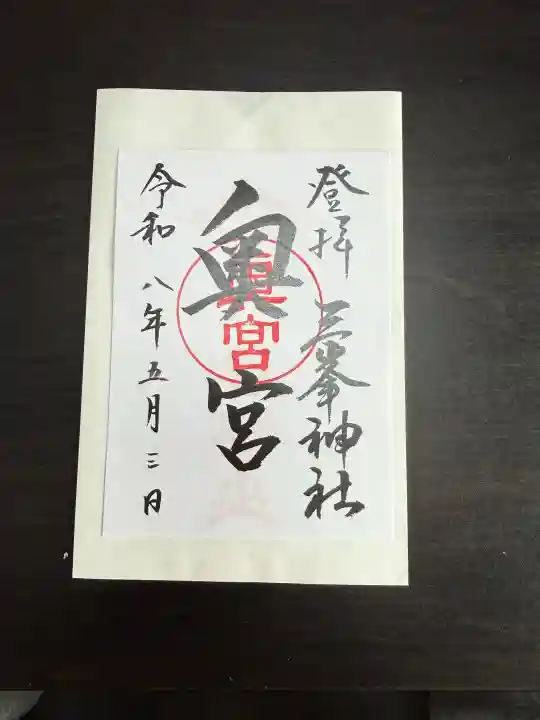 登拝 三峯神社
奥宮
奥宮
令和 八年五月三日